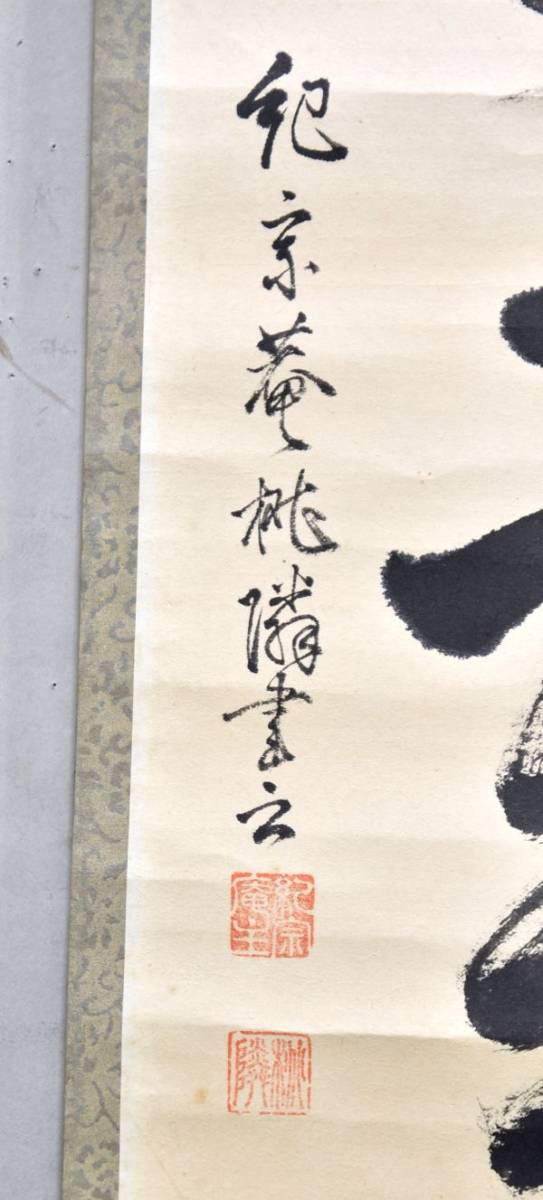 紀宗菴桃隣書之
紀宗庵主
桃隣